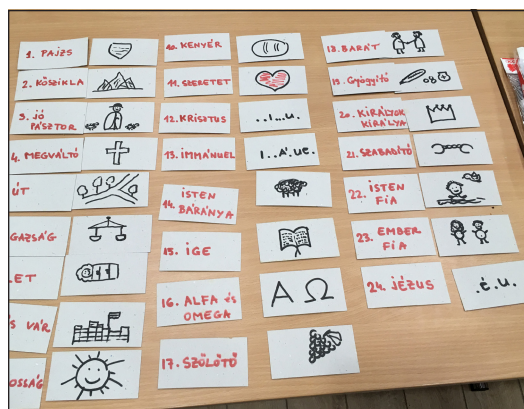 1. PAJZS
2. KŐSZIKLA
3. JÓ
PÁSZTOR
4. MEGVÁLTÓ
ÚT
GAZSÁG
LET
S VÁR
OSSÁG
10. KENYÉR
11. SZERETET
12. KRISZTUS
..I...U.
13. IMMÁNUEL
I..Á.UE.
14. ISTEN
BÁRÁNYA
15. IGE
16. ALFA és
OMEGA
A Ω
17. SZŐLŐTŐ
18. BARÁT
19. Gyógyító
20. KIRÁLYOK
KIRÁLYA
21. SZABADÍTÓ
22. ISTEN
FIA
23. EMBER
FIA
24. JÉZUS
.É.U.